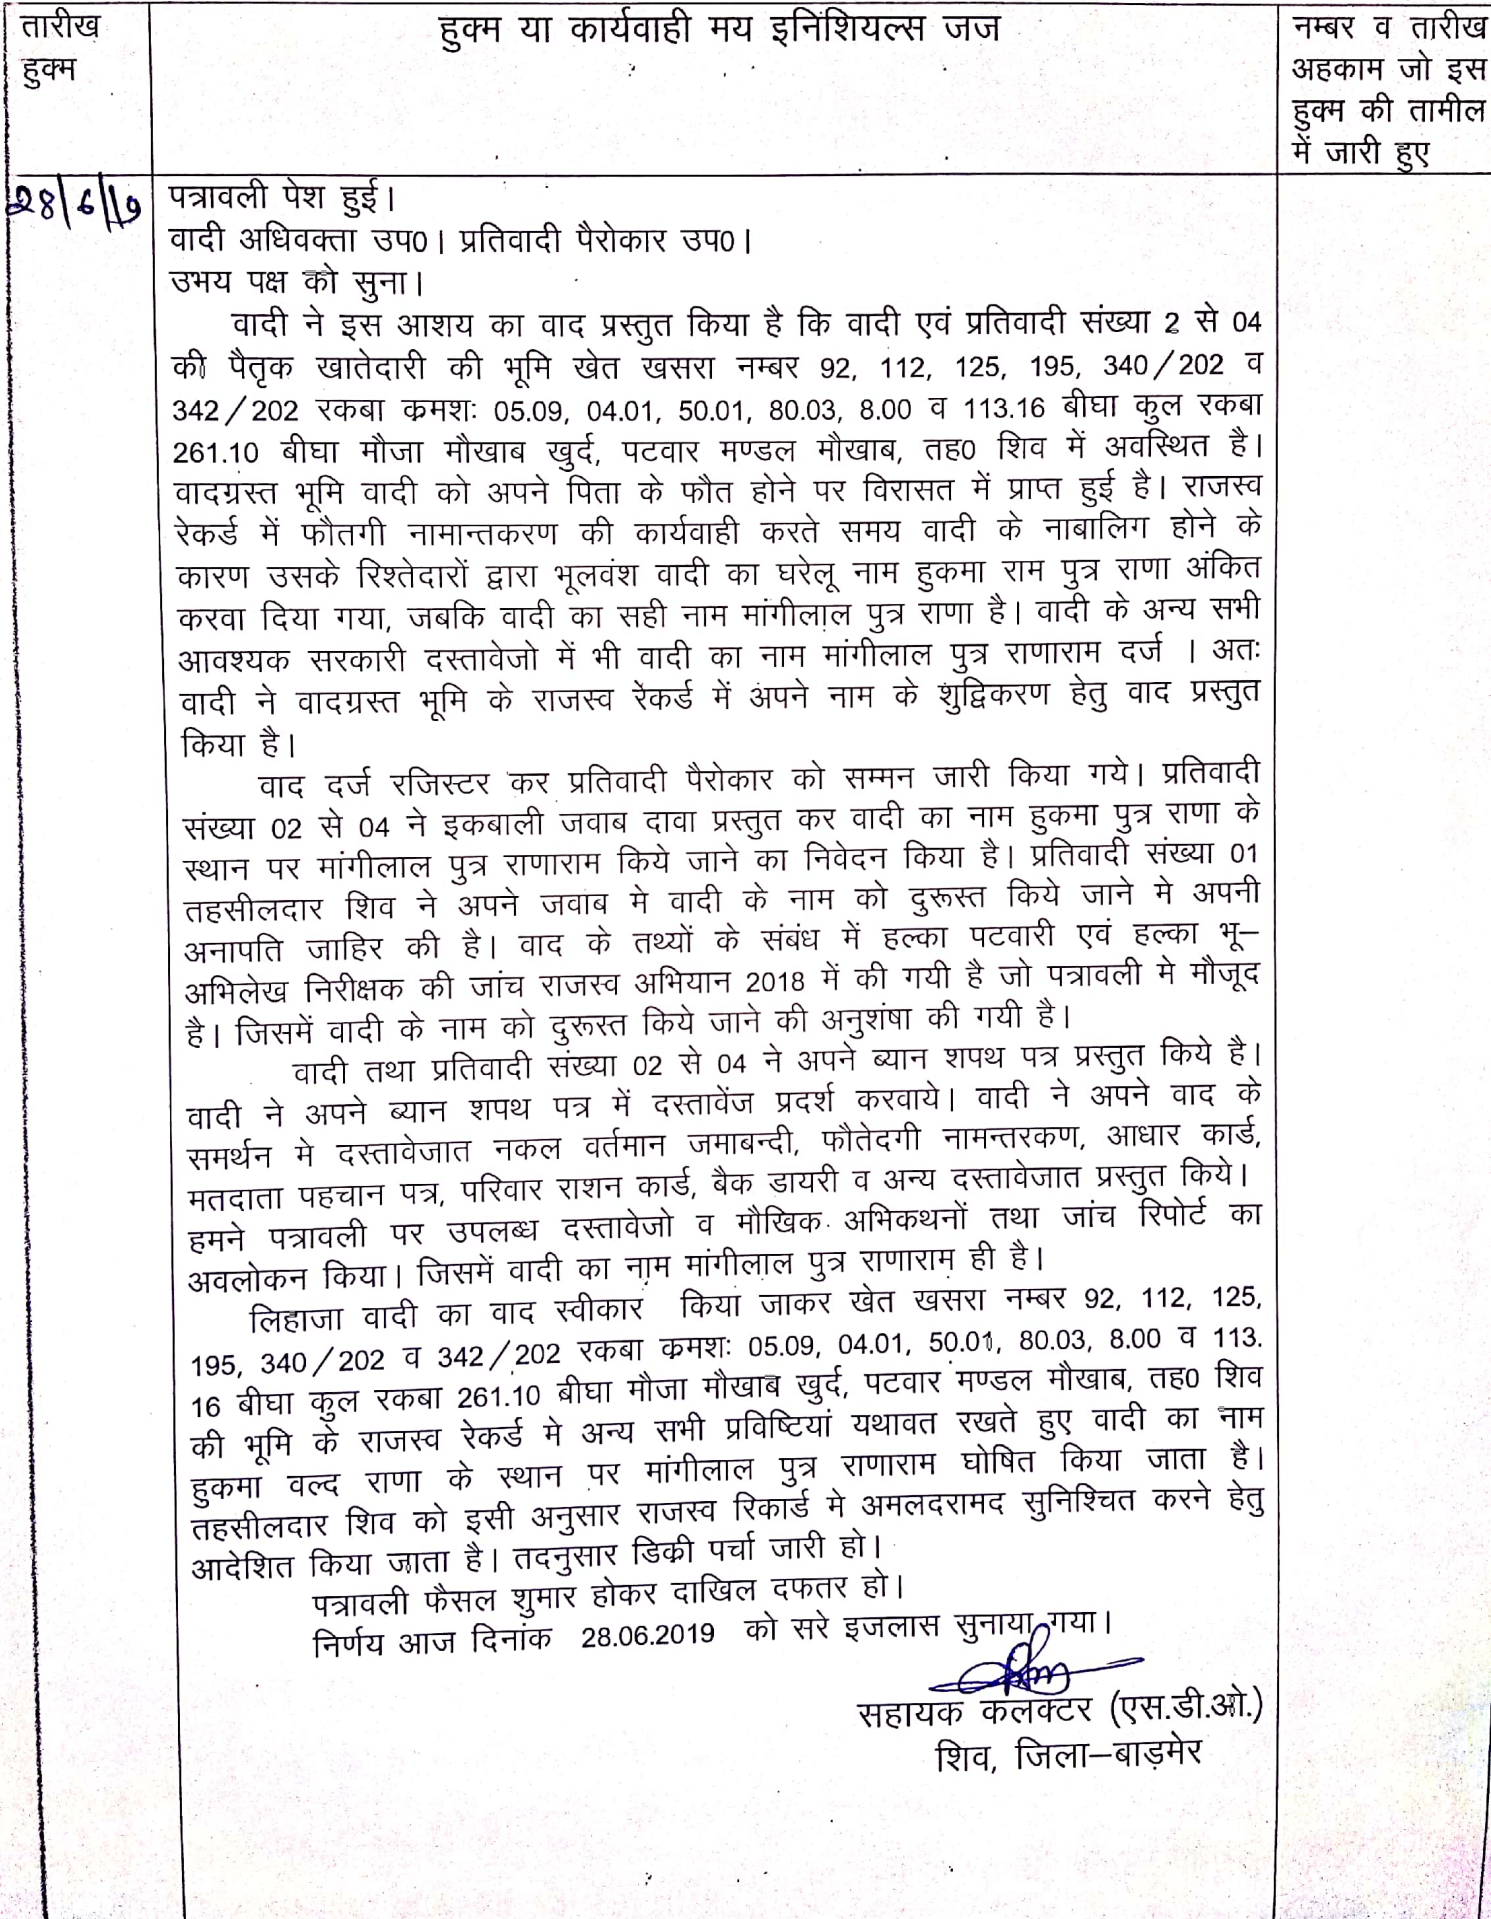 तारीख
हुक्म
हुक्म या कार्यवाही मय इनिशियल्स जज
नम्बर व तारीख
अहकाम जो इस
हुक्म की तामील
में जारी हुए
28/6/19
पत्रावली पेश हुई।
वादी अधिवक्ता उप0। प्रतिवादी पैरोकार उप0।
उभय पक्ष को सुना।
वादी ने इस आशय का वाद प्रस्तुत किया है कि वादी एवं प्रतिवादी संख्या 2 से 04
की पैतृक खातेदारी की भूमि खेत खसरा नम्बर 92, 112, 125, 195, 340/202 व
342/202 रकबा क्रमशः 05.09, 04.01, 50.01, 80.03, 8.00 व 113.16 बीघा कुल रकबा
261.10 बीघा मौजा मौखाब खुर्द, पटवार मण्डल मौखाब, तह0 शिव में अवस्थित है।
वादग्रस्त भूमि वादी को अपने पिता के फौत होने पर विरासत में प्राप्त हुई है। राजस्व
रेकर्ड में फौतगी नामान्तकरण की कार्यवाही करते समय वादी के नाबालिग होने के
कारण उसके रिश्तेदारों द्वारा भूलवंश वादी का घरेलू नाम हुकमा राम पुत्र राणा अंकित
करवा दिया गया, जबकि वादी का सही नाम मांगीलाल पुत्र राणा है। वादी के अन्य सभी
आवश्यक सरकारी दस्तावेजो में भी वादी का नाम मांगीलाल पुत्र राणाराम दर्ज । अतः
वादी ने वादग्रस्त भूमि के राजस्व रेकर्ड में अपने नाम के शुद्विकरण हेतु वाद प्रस्तुत
किया है।
वाद दर्ज रजिस्टर कर प्रतिवादी पैरोकार को सम्मन जारी किया गये। प्रतिवादी
संख्या 02 से 04 ने इकबाली जवाब दावा प्रस्तुत कर वादी का नाम हुकमा पुत्र राणा के
स्थान पर मांगीलाल पुत्र राणाराम किये जाने का निवेदन किया है। प्रतिवादी संख्या 01
तहसीलदार शिव ने अपने जवाब मे वादी के नाम को दुरूस्त किये जाने मे अपनी
अनापति जाहिर की है। वाद के तथ्यों के संबंध में हल्का पटवारी एवं हल्का भू–
अभिलेख निरीक्षक की जांच राजस्व अभियान 2018 में की गयी है जो पत्रावली मे मौजूद
है। जिसमें वादी के नाम को दुरूस्त किये जाने की अनुशंषा की गयी है।
वादी तथा प्रतिवादी संख्या 02 से 04 ने अपने ब्यान शपथ पत्र प्रस्तुत किये है।
वादी ने अपने ब्यान शपथ पत्र में दस्तावेंज प्रदर्श करवाये। वादी ने अपने वाद के
समर्थन मे दस्तावेजात नकल वर्तमान जमाबन्दी, फौतेदगी नामन्तरकण, आधार कार्ड,
मतदाता पहचान पत्र, परिवार राशन कार्ड, बैक डायरी व अन्य दस्तावेजात प्रस्तुत किये।
हमने पत्रावली पर उपलब्ध दस्तावेजो व मौखिक अभिकथनों तथा जांच रिपोर्ट का
अवलोकन किया। जिसमें वादी का नाम मांगीलाल पुत्र राणाराम ही है।
लिहाजा वादी का वाद स्वीकार किया जाकर खेत खसरा नम्बर 92, 112, 125,
195, 340/202 व 342/202 रकबा क्रमशः 05.09, 04.01, 50.01, 80.03, 8.00 व 113.
16 बीघा कुल रकबा 261.10 बीघा मौजा मौखाब खुर्द, पटवार मण्डल मौखाब, तह0 शिव
की भूमि के राजस्व रेकर्ड मे अन्य सभी प्रविष्टियां यथावत रखते हुए वादी का नाम
हुकमा वल्द राणा के स्थान पर मांगीलाल पुत्र राणाराम घोषित किया जाता है।
तहसीलदार शिव को इसी अनुसार राजस्व रिकार्ड मे अमलदरामद सुनिश्चित करने हेतु
आदेशित किया जाता है। तदनुसार डिक्री पर्चा जारी हो।
पत्रावली फैसल शुमार होकर दाखिल दफतर हो।
निर्णय आज दिनांक 28.06.2019 को सरे इजलास सुनाया गया।
सहायक कलक्टर (एस.डी.ओ.)
शिव, जिला–बाड़मेर